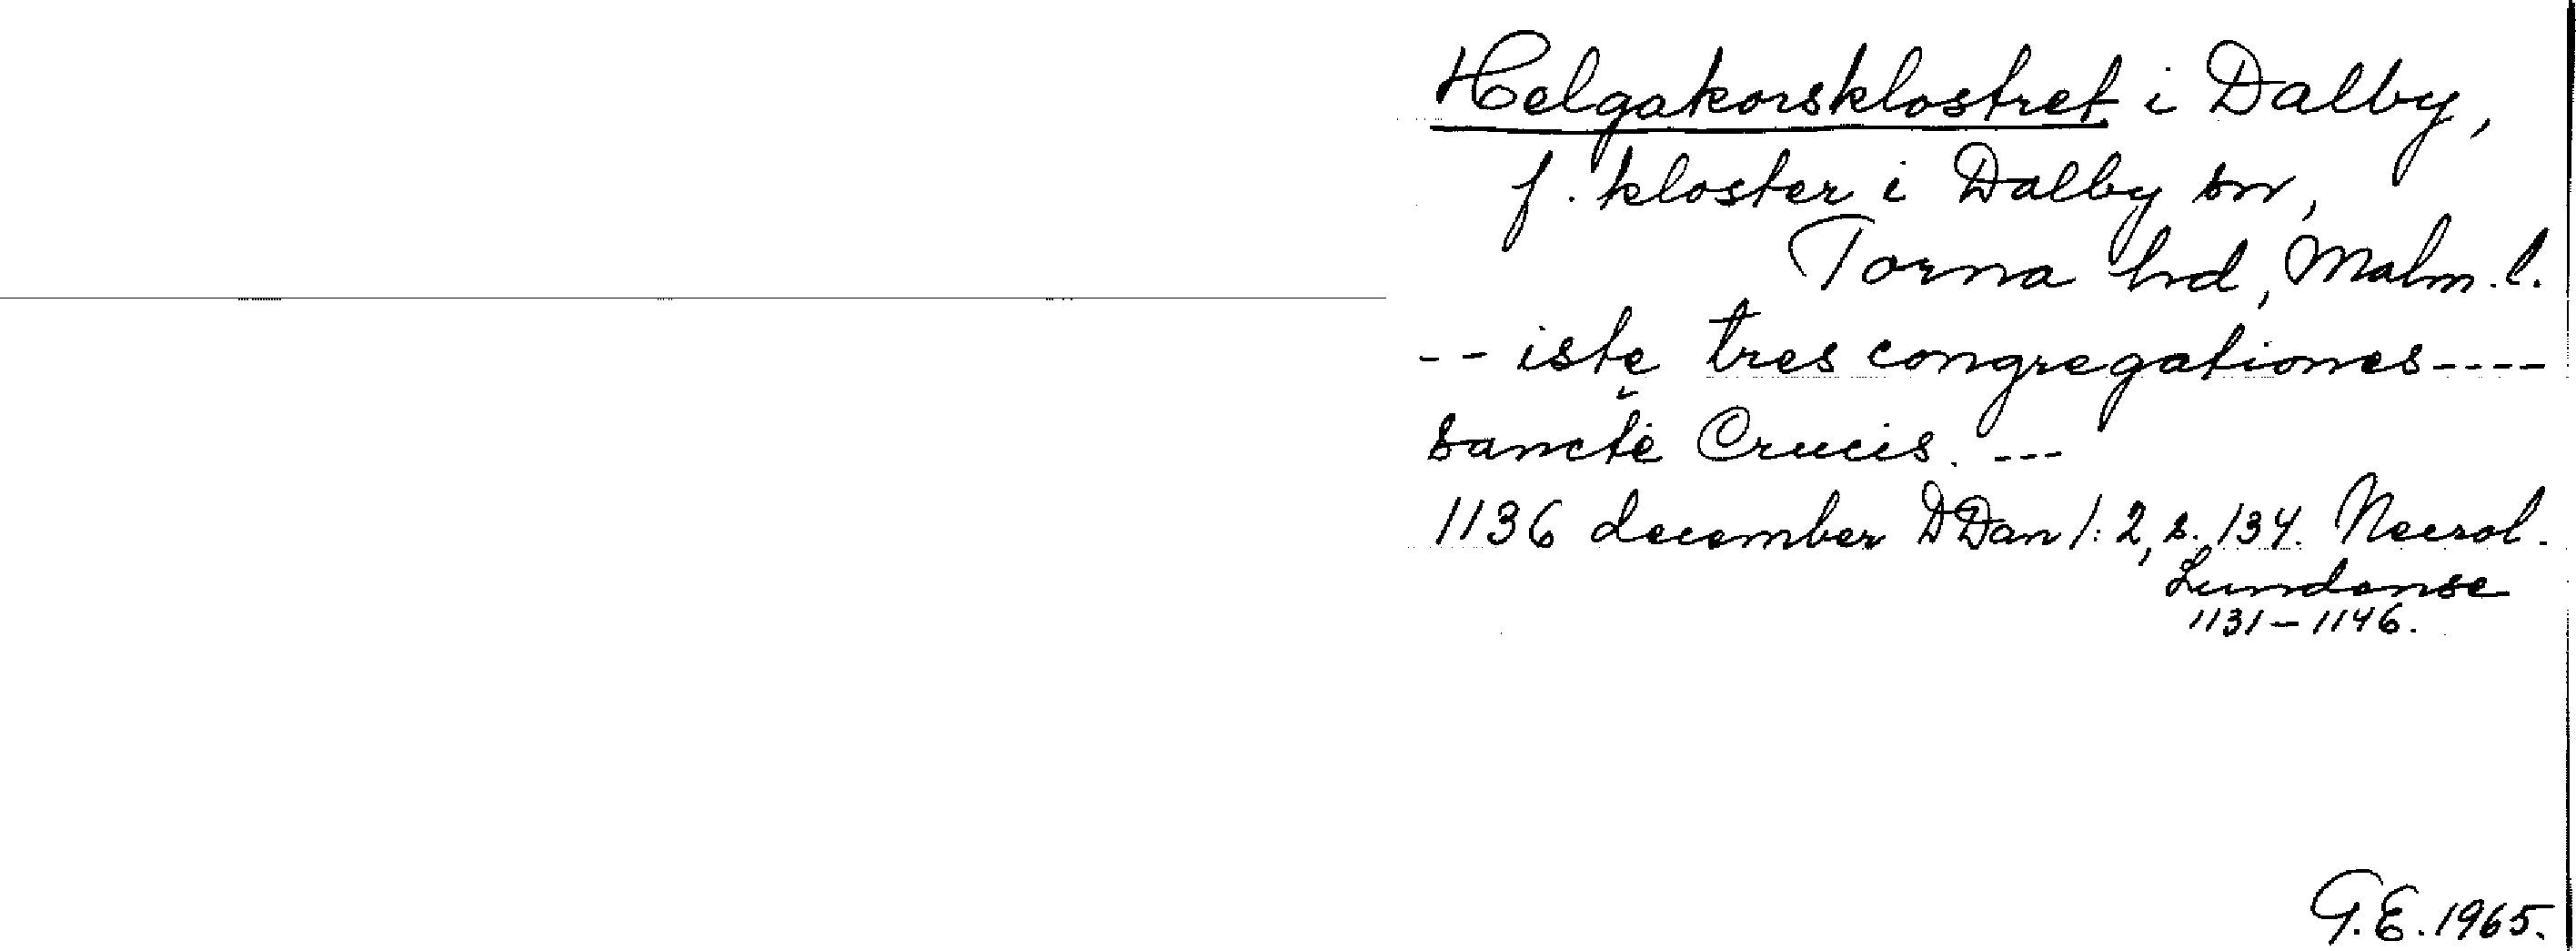 Helgakorsklostret i Dalby,
f. kloster i Dalby sn,
Torna hd, Malm. l.
-- istę tres congregationes ----
sanctę Crucis. ---
1136 december DDan 1:2, s. 134. Necrol.
Lundense
1131-1146.
G.E. 1965.